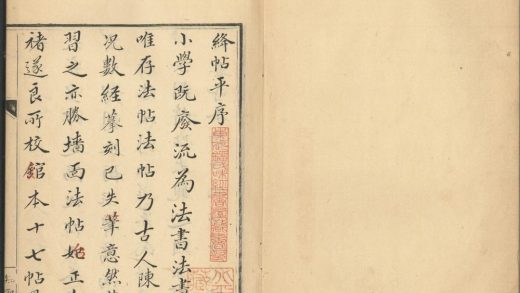 絳帖平序
小學既廢流為法書法書
唯存法帖法帖乃古人陳
況數經摹刻已失筆意然
習之亦勝墙面法帖始正
褚遂良所校館本十七帖